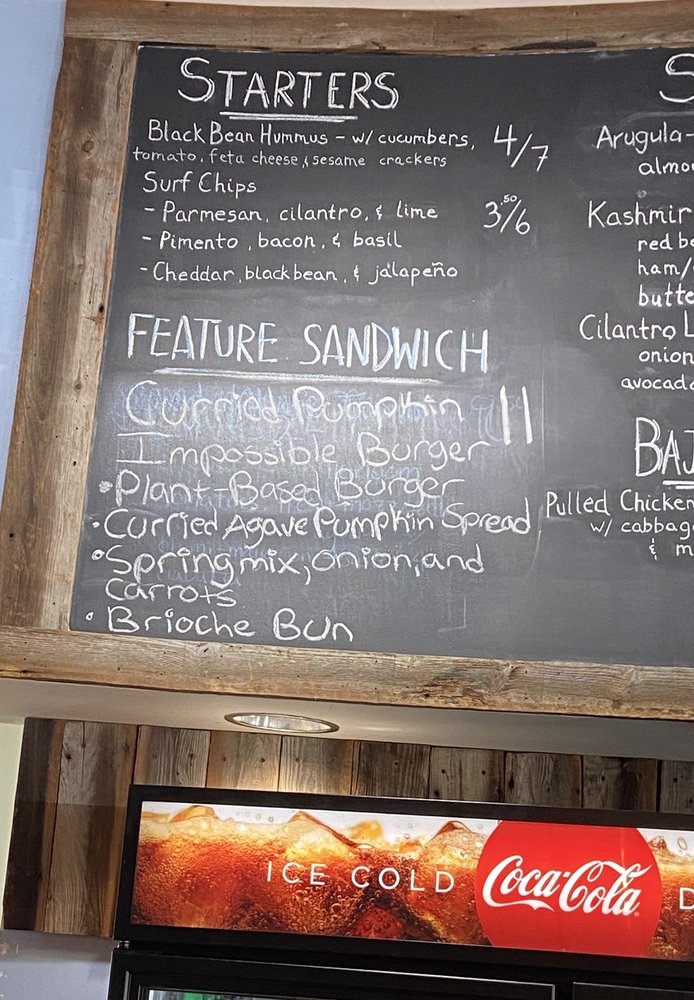 STARTERS
Black Bean Hummus - w/ cucumbers, 4/7
tomato, feta cheese, & sesame crackers
Surf Chips
- Parmesan, cilantro, & lime 3.50/6
- Pimento, bacon, & basil
- Cheddar, black bean, & jalapeño
FEATURE SANDWICH
Curried Pumpkin 11
Impossible Burger
• Plant-Based Burger
• Curried Agave Pumpkin Spread
• Springmix, onion, and
carrots
• Brioche Bun
S
Arugula-
almo
Kashmir
red be
ham/
butte
Cilantro L
onion
avocado
BAJ
Pulled Chicken
w/ cabbag
& m
ICE COLD Coca-Cola D